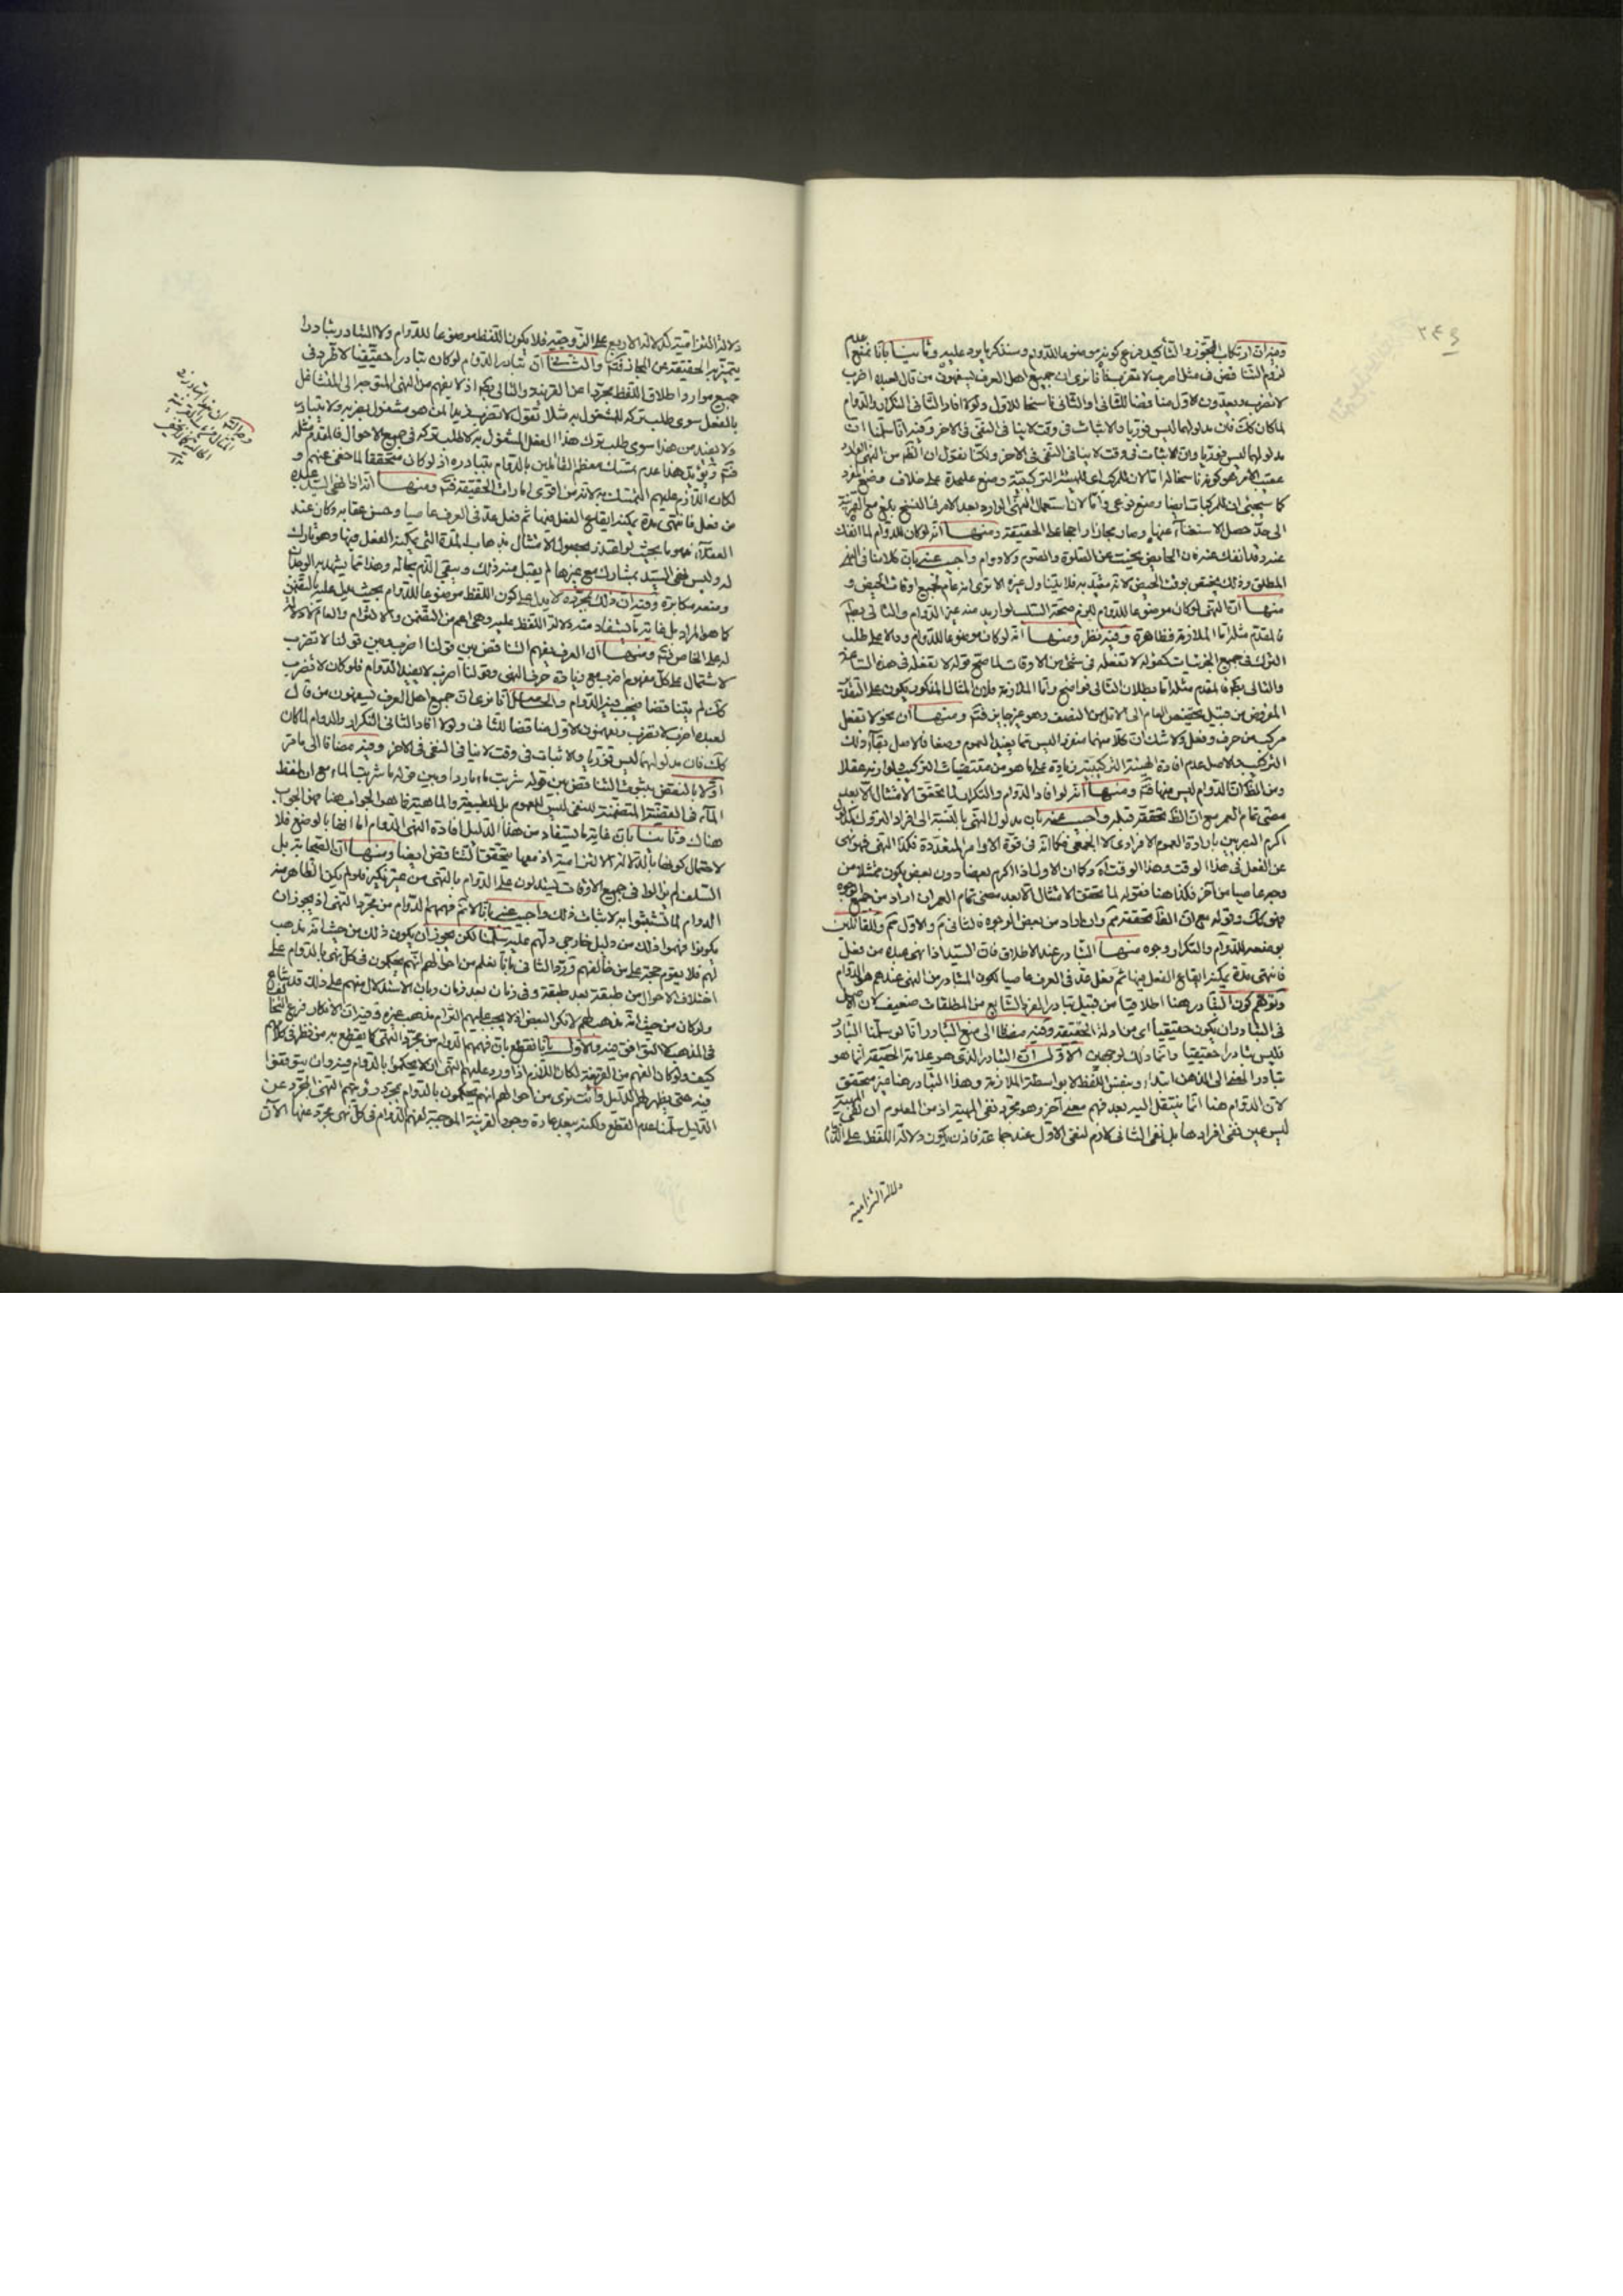 وفيه ان ارتكاب التجوز والتأكيد فرع كونه موضوعا للدوام وسنذكر ما يرد عليه وثانيا بانا نمنع عدم
لزوم التناقض في مثل اضرب لا تضرب فانا نرى ان جميع اهل العرف يفهمون من قال لعبده اضرب
لا تضرب ويعدون الاول مناقضا للثاني او الثاني ناسخا للاول ولولا افاد الثاني التكرار والدوام
لما كان كك فان مدلولهما ليس فوريا والاثبات في وقت لا ينافي النفي في الاخر وفيه انا سلمنا ان
مدلولهما ليس فوريا وان الاثبات في وقت لا ينافي النفي في الاخر ولكنا نقول ان الفهم من النهي الوارد
عقيب الامر هو كونه ناسخا له
كما سيجئ ان للمركبات ايضا وضع نوعي واما لان استعمال النهي الوارد بعد الامر في النسخ بلغ مع القرينة
الى حد حصل الاستغناء عنها وصار مجازا راجحا على الحقيقة ومنها انه لو كان للدوام لما انفك
عنه وقد انفك عنه فان الحائض نهيت عن الصلوة والصوم ولا دوام واجيب عنه بان كلامنا في النهي
المطلق وذلك يختص بوقت الحيض لانه مقيد به فلا يتناول غيره الا ترى انه عام لجميع اوقات الحيض و
منها ان النهي لو كان موضوعا للدوام لزم صحة السلب لو اريد منه غير الدوام والتالي بط
فالمقدم مثله اما الملازمة فظاهرة وفيه نظر ومنها انه لو كان موضوعا للدوام ودالا على طلب
الترك في جميع الجزئيات كقوله لا تفعله في شئ من الاوقات لما صح قوله لا تفعله في هذه الساعة
والتالي بط فالمقدم مثله اما بطلان التالي فواضح واما الملازمة فلان المثال المذكور يكون على التقدير
المفروض من قبيل تخصيص العام الى الاقل من النصف وهو غير جايز فتم ومنها ان نحو لا تفعل
مركب من حرف وفعل ولا شك ان كلا منهما منفردا ليس مما يفيد العموم وضعا فالاصل بقاء ذلك
التركيب لاصل عدم افادة الهيئة التركيبية زيادة على ما هو من مقتضيات التركيب ولوازمه عقلا
ومن الظ ان الدوام ليس منها فتم ومنها انه لو افاد الدوام والتكرار لما تحقق الامتثال الا بعد
مضي تمام العمر مع ان الظ تحققه قبله واجيب عنه بان مدلول النهي بالنسبة الى افراد التروك كمدلول
اكرم البصريين بارادة العموم الافرادي لا الجمعي فكما انه في قوة الاوامر المتعددة فكذا النهي فهو نهي
عن الفعل في هذا الوقت وهذا الوقت آه وكما ان الاول اذا اكرم بعضا دون بعض يكون ممتثلا من
وجه عاصيا من آخر فكذا هنا فقوله لما تحقق الامتثال الا بعد مضي تمام العمر ان اراد من جميع الوجوه
فهو كك وقوله مع ان الظ تحققه تم وان اراد من بعض الوجوه فالثاني تم والاول تم وللقائلين
بوضعه للدوام والتكرار وجوه منها التبادر عند الاطلاق فان السيد اذا نهى عبده من فعل
فانتهى مدة يمكنه ايقاع الفعل فيها ثم فعل عد في العرف عاصيا لكون المتبادر من النهي عندهم هو الدوام
وتوهم كون التبادر هنا اطلاقيا من قبيل تبادر الفرد الشايع من المطلقات ضعيف لان الاصل
في التبادر ان يكون حقيقيا اي من ادلة الحقيقة وفيه مضافا الى منع التبادر انا لو سلمنا التبادر
فليس تبادرا حقيقيا وانما ذلك لوجهين الاول ان التبادر الذي هو علامة الحقيقة انما هو
تبادر المعنى الى الذهن ابتداء وبنفس اللفظ لا بواسطة الملازمة وهذا التبادر هنا غير متحقق
لان الدوام هنا انما ينتقل اليه بعد فهم معنى آخر وهو مجرد نفي المهية اذ من المعلوم ان نفي المهية
ليس عين نفي افرادها بل نفي الثاني لازم لنفي الاول عند جماعة فاذن يكون دلالة اللفظ على الدوام
دلالة التزامية
دلالة التزامية كدلالة الاربع على الزوجية فلا يكون اللفظ موضوعا للدوام ولا التبادر تبادرا
يتميز به الحقيقة عن المجاز فتم والثاني ان تبادر الدوام لو كان تبادرا حقيقيا لاطرد في
جميع موارد اطلاق اللفظ مجردا عن القرينة والتالي بط اذ لا يفهم من النهي المتوجه الى المتشاغل
بالفعل سوى طلب تركه للمشغول به مثلا تقول لا تضرب زيدا لمن هو مشغول بضربه ولا يتبادر
ولا يفيد من هذا سوى طلب ترك هذا الفعل المشغول به لا طلب تركه في جميع الاحوال فالمقدم مثله
فتم ويؤيد هذا عدم تمسك معظم القائلين بالدوام بتبادره اذ لو كان متحققا لما خفي عنهم و
لكان اللازم عليهم التمسك به لانه من اقوى امارات الحقيقة فتم ومنها انه اذا نهى السيد عبده
من فعل فانتهى مدة يمكنه ايقاع الفعل فيها ثم فعل عد في العرف عاصيا وحسن عقابه وكان عند
العقلاء مذموما بحيث لو اعتذر بحصول الامتثال بذهاب المدة التي يمكنه الفعل فيها وهو تارك
له وليس نهي السيد بمشارك مع غيرها لم يقبل منه ذلك وبقي الذم بحاله وهذا مما يشهد به الوجدان
ومنعه مكابرة وفيه ان ذلك بمجرده لا يدل على كون اللفظ موضوعا للدوام بحيث يدل عليه بالتضمن
كما هو المراد بل غاية ما يستفاد منه دلالة اللفظ عليه وهي اعم من التضمن والالتزام والعام لا دلالة
له على الخاص فتم ومنها ان العرف يفهم التناقض بين قولنا اضرب وبين قولنا لا تضرب
لاشتمال على كل مفهوم اضرب مع زيادة حرف النهي وقولنا اضرب لا يفيد الدوام فلو كان لا تضرب
كك لم يتناقضا فيجب فيه الدوام والحاصل انا نرى ان جميع اهل العرف يفهمون من قال
لعبده اضرب لا تضرب ويفهمون الاول مناقضا للثاني ولولا افاد الثاني التكرار والدوام لما كان
كك فان مدلولهما ليس فوريا والاثبات في وقت لا ينافي النفي في الاخر وفيه مضافا الى ما مر
اولا بالنقض بثبوت التناقض بين قوله شربت ماء باردا وبين قوله ما شربت الماء مع ان لفظ
الماء في القضية المتضمنة للنفي ليس للعموم بل للطبيعة والماهية فما هو الجواب هنا فهو الجواب
هناك وثانيا بان غاية ما يستفاد من هذا الدليل افادة النهي الدوام اما انها بالوضع فلا
لاحتمال كونها بالدلالة الالتزامية اذ معها يتحقق التناقض ايضا ومنها ان الصحابة بل
السلف لم يزالوا في جميع الاوقات يستدلون على الدوام بالنهي من غير نكير فلو لم يكن الظاهر منه
الدوام لما تشبثوا به لاثبات ذلك واجيب عنه بانا لا نم فهمهم الدوام من مجرد النهي اذ يجوز ان
يكونوا فهموا ذلك من دليل خارجي دلهم عليه سلمنا لكن يجوز ان يكون ذلك من حيث انه مذهب
لهم فلا يقوم حجة على من خالفهم ورد الثاني بانا نعلم من احوالهم انهم يحكمون في كل نهي بالدوام على
اختلاف الاحوال من طبقة بعد طبقة وفي زمان بعد زمان وبان الاستدلال منهم على ذلك قد شاع
ولو كان من حيث انه مذهب لهم لانكر البعض اذ لا يجب عليهم التزام مذهب غيره وفيه ان الانكار فرع التخالف
في المذهب التوافق فيه والاول بانا نقطع بان فهمهم الدوام من مجرد النهي كما يقطع به من نظر في كلامهم
كيف ولو كان الفهم من القرينة لكان اللازم اذا ورد عليهم النهي ان لا يحكموا بالدوام فيه وان يتوقفوا
فيه حتى يظهر لهم الدليل وانت ترى من احوالهم انهم يحكمون بالدوام بمجرد رؤيتهم النهي المجرد عن
الدليل سلمنا عدم القطع ولكنه يبعد عادة وجود القرينة الموجبة لفهم الدوام في كل نهي مجرد عنها الان